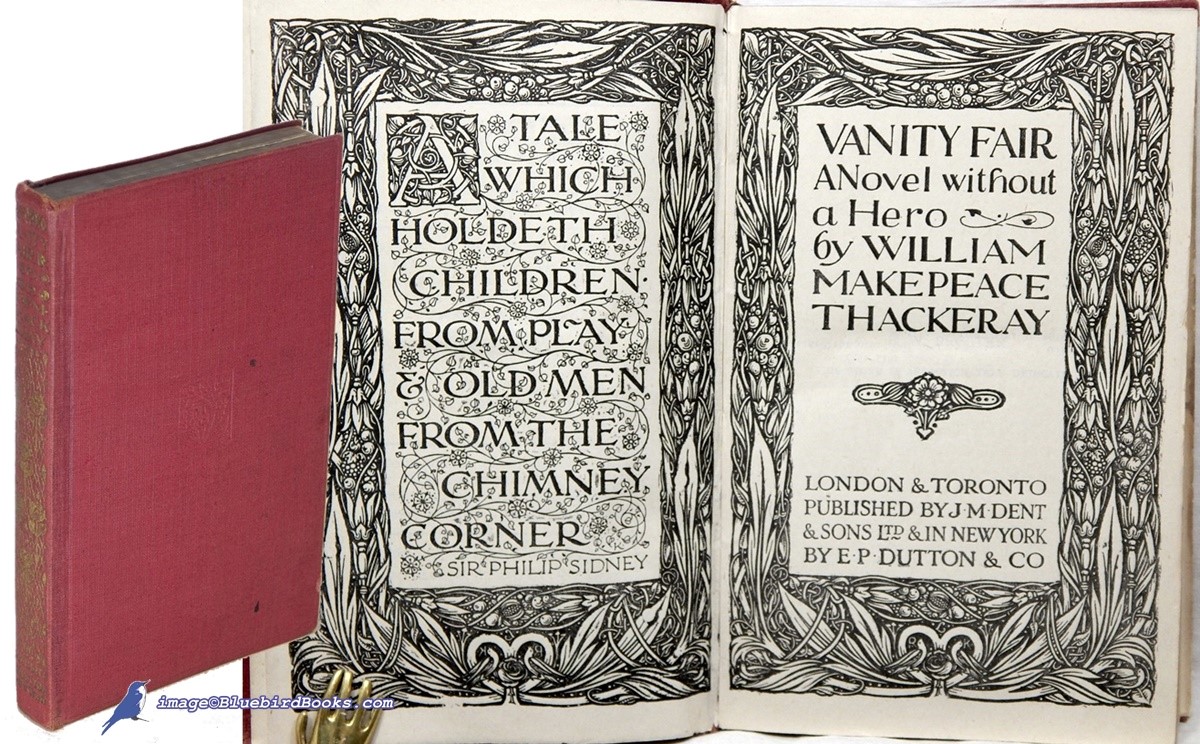 A TALE
WHICH
HOLDETH
CHILDREN
FROM PLAY
& OLD MEN
FROM THE
CHIMNEY
CORNER
SIR PHILIP SIDNEY
VANITY FAIR
A Novel without
a Hero
by WILLIAM
MAKEPEACE
THACKERAY
LONDON & TORONTO
PUBLISHED BY J·M·DENT
& SONS LTD & IN NEW YORK
BY E·P·DUTTON & CO
image©BluebirdBooks.com